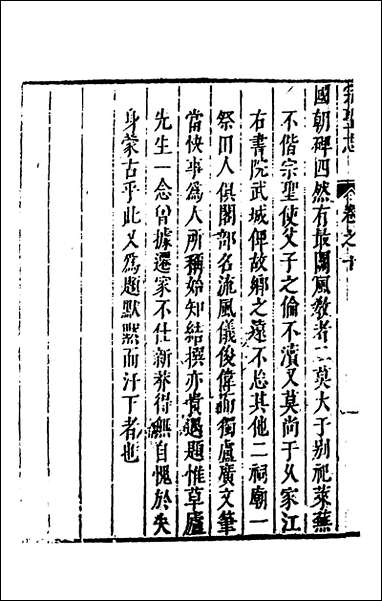 宗聖志 卷之十
國朝碑四然有最關風教者二莫大于別祀萊蕪
不偕宗聖使父子之倫不瀆又莫尚于从家江
右書院武城俾故鄉之遠不忘其他二祠廟一
祭田人俱閣部名流風儀俊偉而獨盧廣文筆
當快事為人所稱始知結撰亦貴遇題惟草廬
先生一念曾據遷家不仕新莽得無自愧於失
身蒙古乎此又為題默默而汗下者也